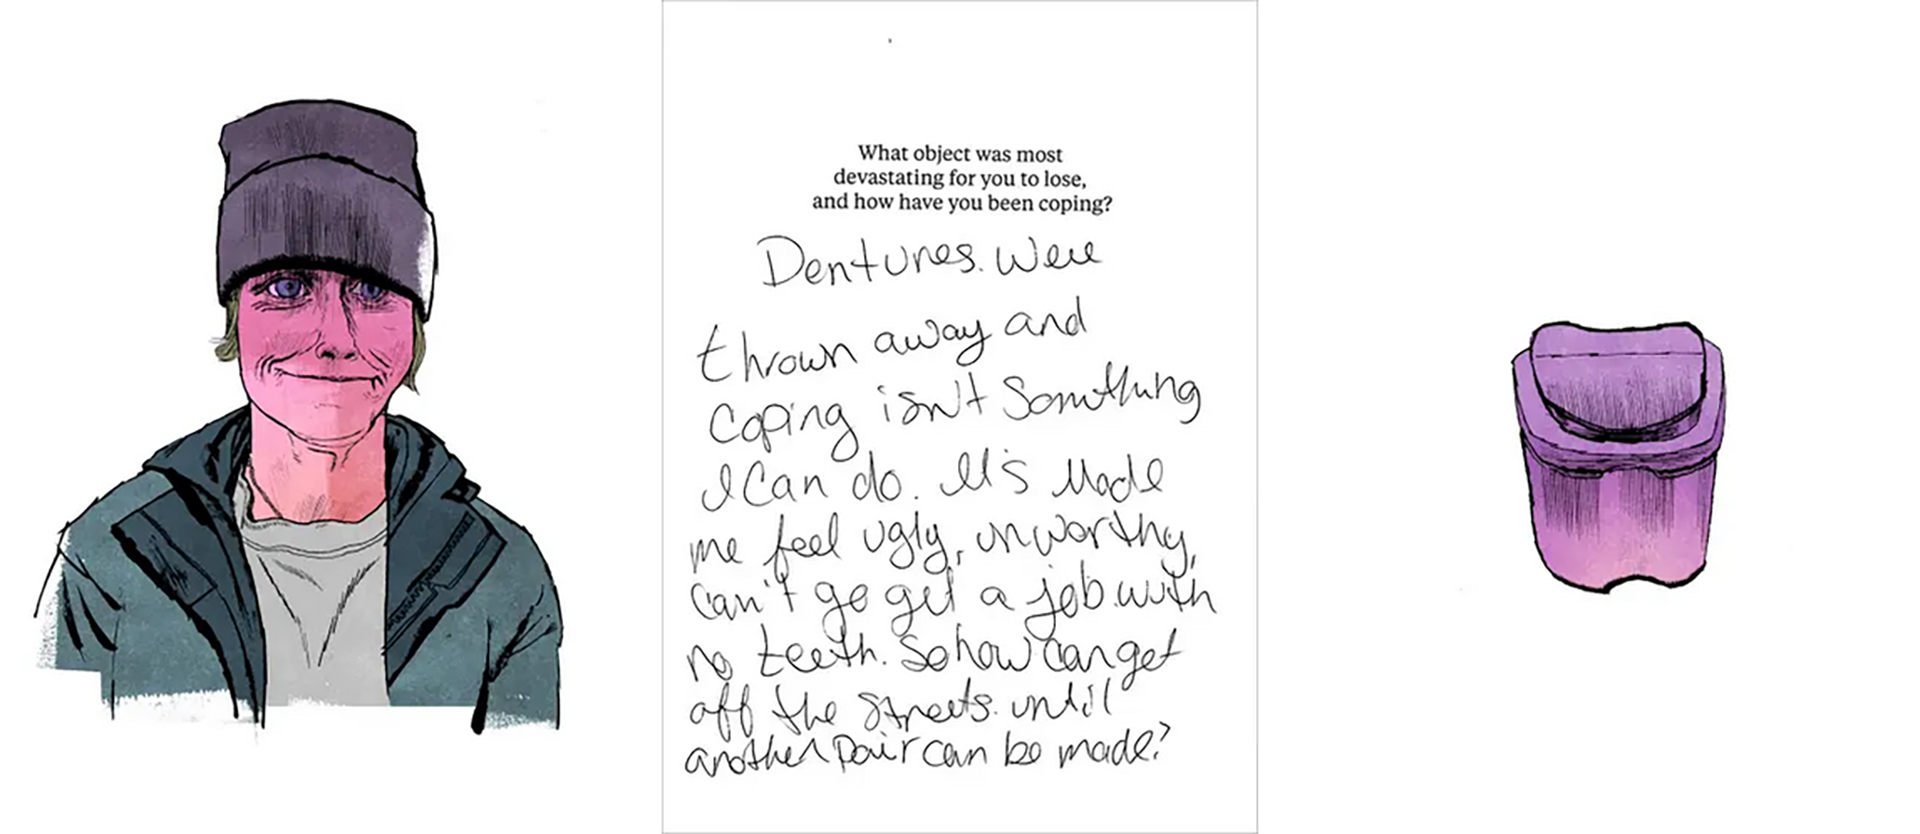 What object was most
devastating for you to lose,
and how have you been coping?
Dentures. Were
thrown away and
Coping isn't Something
I Can do. It's Made
me feel ugly, unworthy,
can't go get a job with
no teeth. So how can get
off the streets until
another pair can be made?